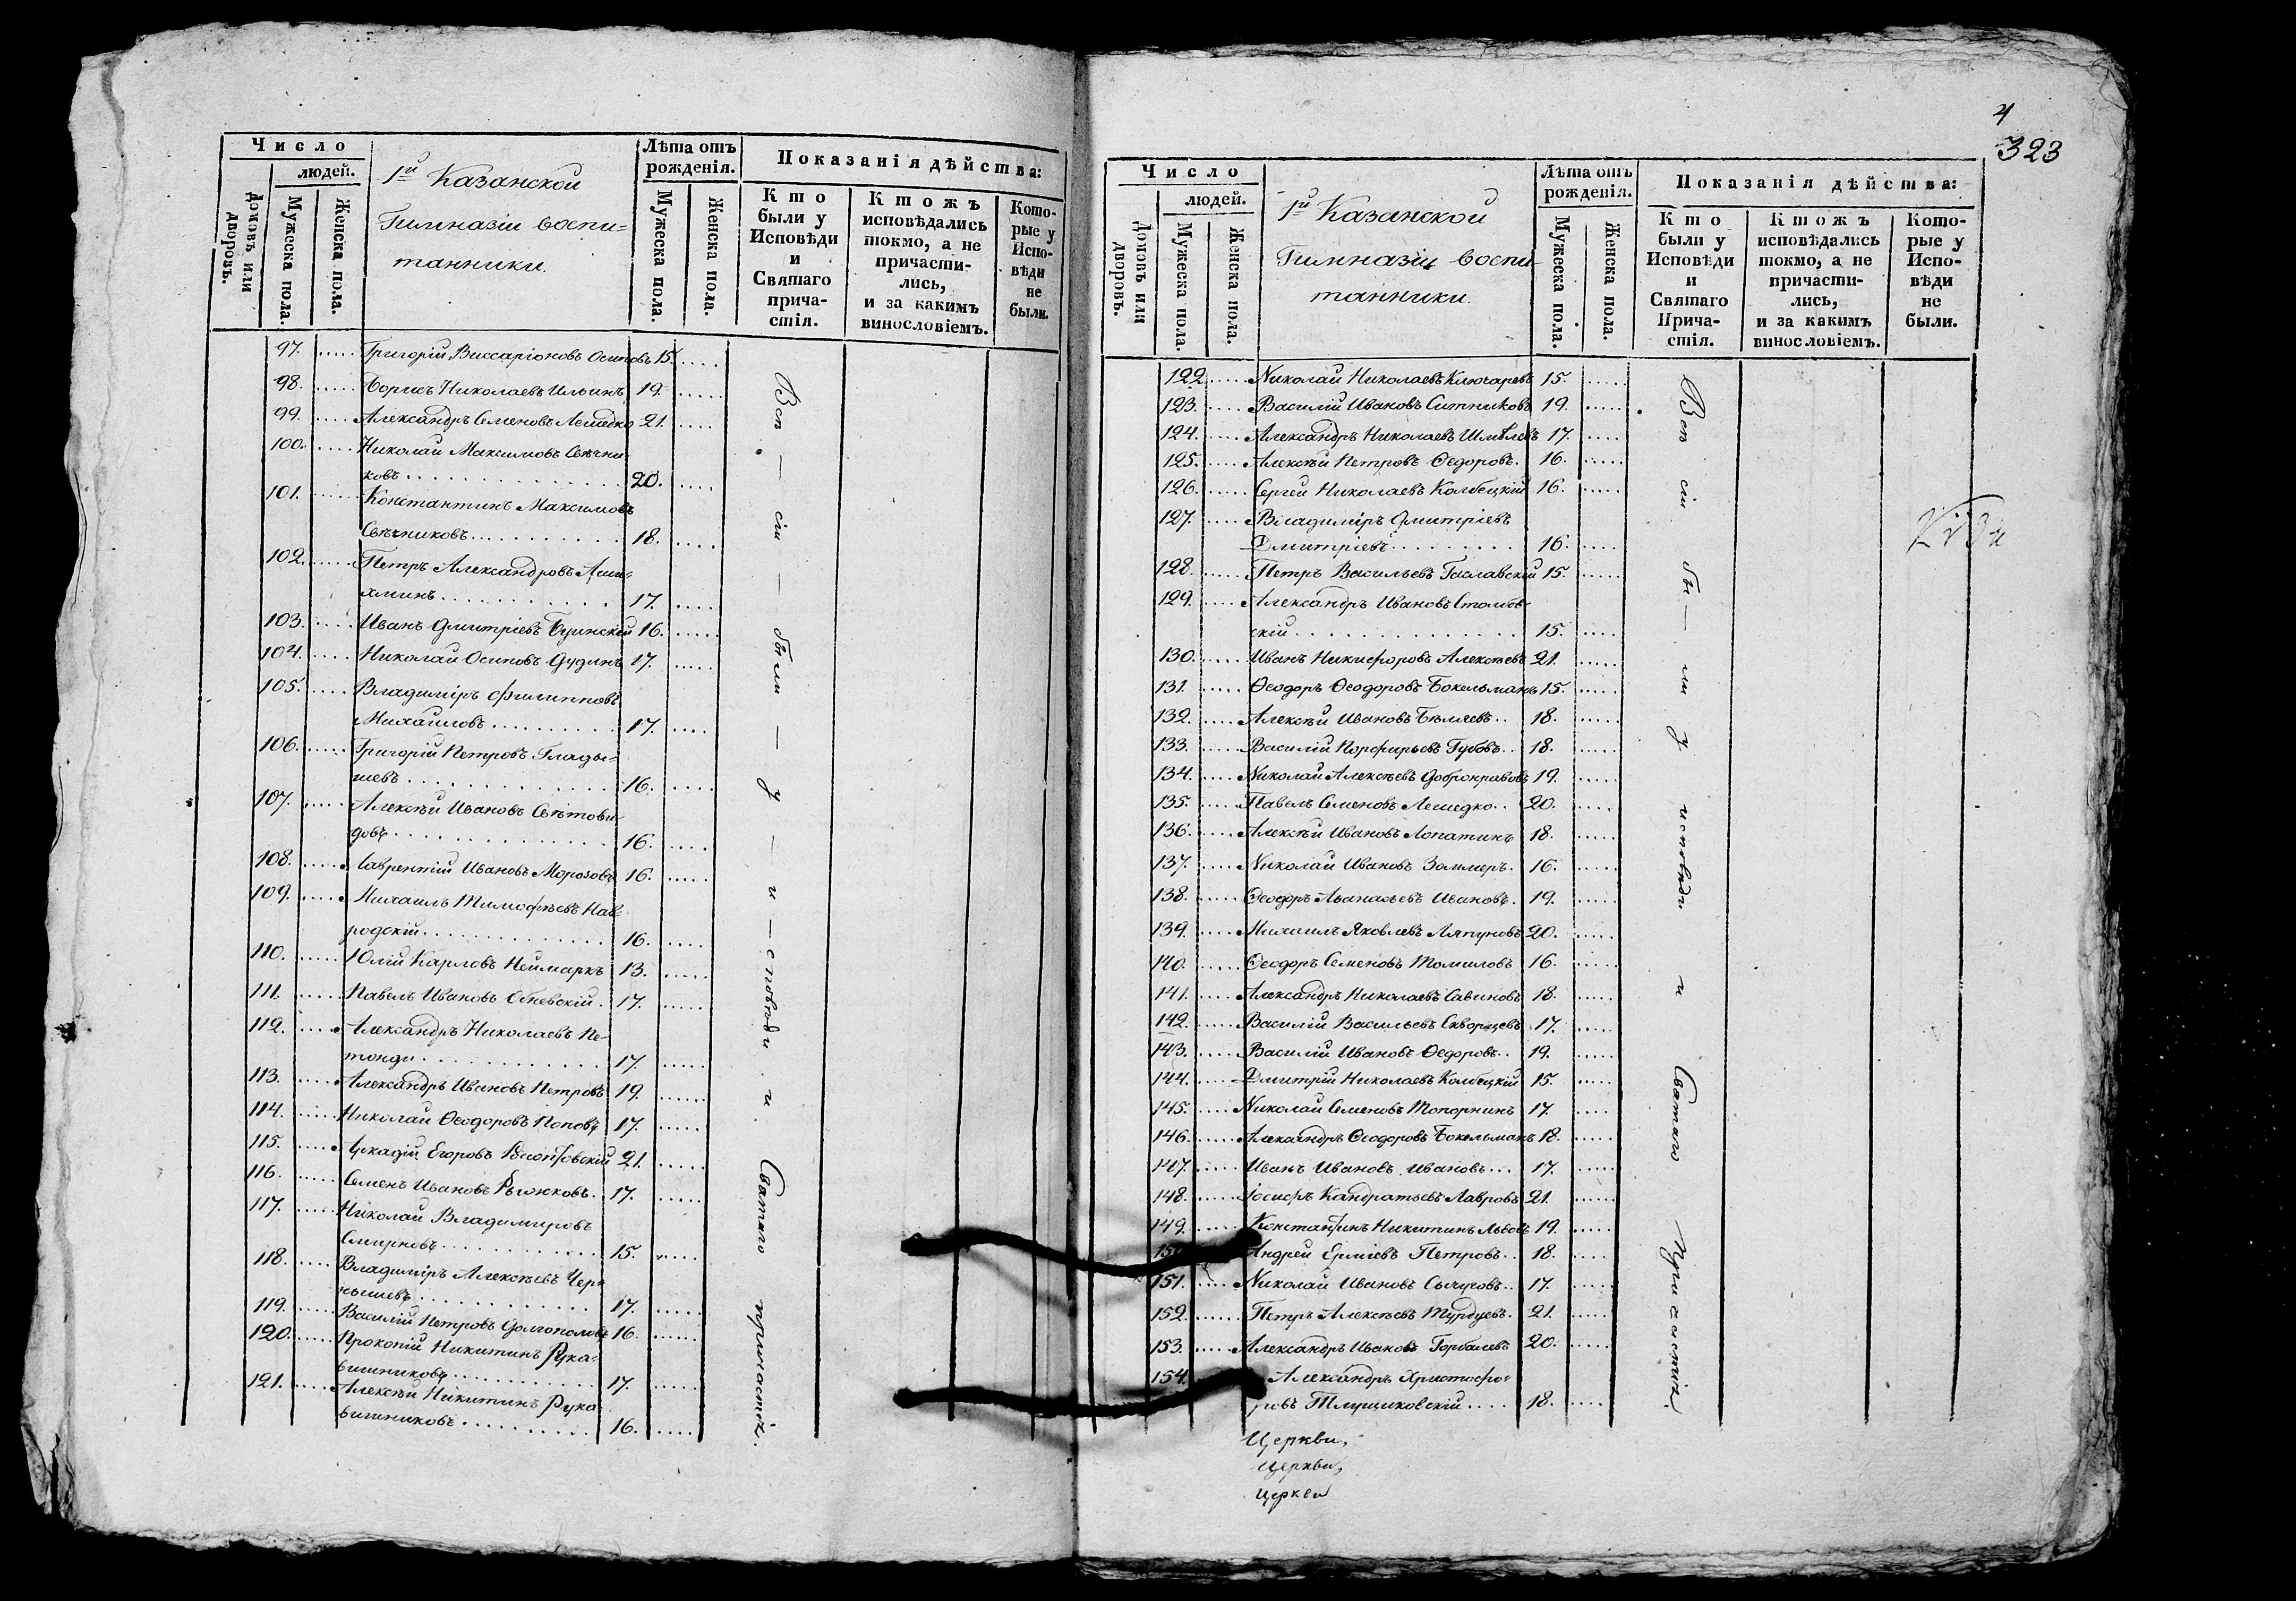 Число
людей.
домовъ или дворовъ.
Мужеска пола.
Женска пола.
1й Казанской
Гимназіи воспи=
танники.
Лѣта отъ
рожденія.
Мужеска пола.
Женска пола.
Показанія дѣйства:
Кто
были у
Исповѣди
и
Святаго
прича-
стія.
Ктожъ
исповѣдались
токмо, а не
причасти-
лись,
и за какимъ
винословіемъ.
Кото-
рые у
Испо-
вѣди
не
были.
97. Григорій Виссаріоновъ Осиповъ 15.
98. Борисъ Николаевъ Ильинъ 19.
99. Александръ Семеновъ Лемедко 21.
100. Николай Максимовъ Свѣчни-
ковъ 20.
101. Константинъ Максимовъ
Свѣчниковъ 18.
102. Петръ Александровъ
17.
103. Иванъ Дмитріевъ 16.
104. Николай Осиповъ Дудинъ 17.
105. Владиміръ Филипповъ
Михайловъ 17.
106. Григорій Петровъ Глады=
шевъ 16.
107. Алексѣй Ивановъ Свѣтови-
довъ 16.
108. Лаврентій Ивановъ Морозовъ 16.
109. Михаилъ Тимофѣевъ Нав-
родскій 16.
110. Юлій Карловъ Неймаркъ 13.
111. Павелъ Ивановъ Обневскій 17.
112. Александръ Николаевъ Пе-
тонди 17.
113. Александръ Ивановъ Петровъ 19.
114. Николай Ѳеодоровъ Поповъ 17.
115. Аркадій Егоровъ 21.
116. Семенъ Ивановъ 17.
117. Николай Владимировъ
Смирновъ 15.
118. Владиміръ Алексѣевъ Чер-
нышевъ 17.
119. Василій Петровъ Долгополовъ 16.
120. Прокопій Никитинъ Рука=
вишниковъ 17.
121. Алексѣй Никитинъ Рука
вишниковъ 16.
Всѣ — сіи — были — у — исповѣди и Святаго причастія.
4
323
Число
людей.
Домовъ или дворовъ.
Мужеска пола.
Женска пола.
1й Казанской
Гимназіи воспи-
танники.
Лѣта отъ
рожденія.
Мужеска пола.
Женска пола.
Показанія дѣйства:
Кто
были у
Исповѣди
и
Святаго
Прича-
стія.
Ктожъ
исповѣдались
токмо, а не
причасти-
лись,
и за какимъ
винословіемъ.
Кото-
рые у
Испо-
вѣди
не
были.
122. Николай Николаевъ Ключаревъ 15.
123. Василій Ивановъ Ситниковъ 19.
124. Александръ Николаевъ Шмелевъ 17.
125. Алексѣй Петровъ Ѳедоровъ. 16.
126. Сергей Николаевъ Колбецкій 16.
127. Владиміръ Дмитріевъ
Дмитріевъ 16.
128. Петръ Васильевъ 15.
129. Александръ Ивановъ Столбов-
скій 15.
130. Иванъ Никифоровъ Алексѣевъ 21.
131. Ѳеодоръ Ѳеодоровъ Бокельманъ 15.
132. Алексѣй Ивановъ Бѣляевъ 18.
133. Василій Порфирьевъ Губовъ 18.
134. Николай Алексѣевъ Добронравовъ 19.
135. Павелъ Семеновъ Лемедко 20.
136. Алексѣй Ивановъ Лопатинъ 18.
137. Николай Ивановъ Зоммеръ. 16.
138. Ѳеодоръ Аѳанасьевъ Ивановъ. 19.
139. Михаилъ Яковлевъ Ляпуновъ 20.
140. Ѳеодоръ Семеновъ Томиловъ 16.
141. Александръ Николаевъ Савиновъ 18.
142. Василій Васильевъ Скворцевъ 17.
143. Василій Ивановъ Ѳедоровъ 19.
144. Дмитрій Николаевъ Колбецкій 15.
145. Николай Семеновъ Топорнинъ 17.
146. Александръ Ѳеодоровъ Бокельманъ 18.
147. Иванъ Ивановъ Ивановъ 17.
148. Іосифъ Кандратьевъ Лавровъ 21.
149. Константинъ Никитинъ Львовъ 19.
150. Андрей Ерміевъ Петровъ 18.
151. Николай Ивановъ Сычуговъ 17.
152. Петръ Алексѣевъ 21.
153. Александръ Ивановъ Горбалевъ 20.
154. Александръ Христофо=
ровъ 18.
Всѣ сіи бы — ли у исповѣди и Святаго Причастія.
Церкви,
Церкви,
Церкви